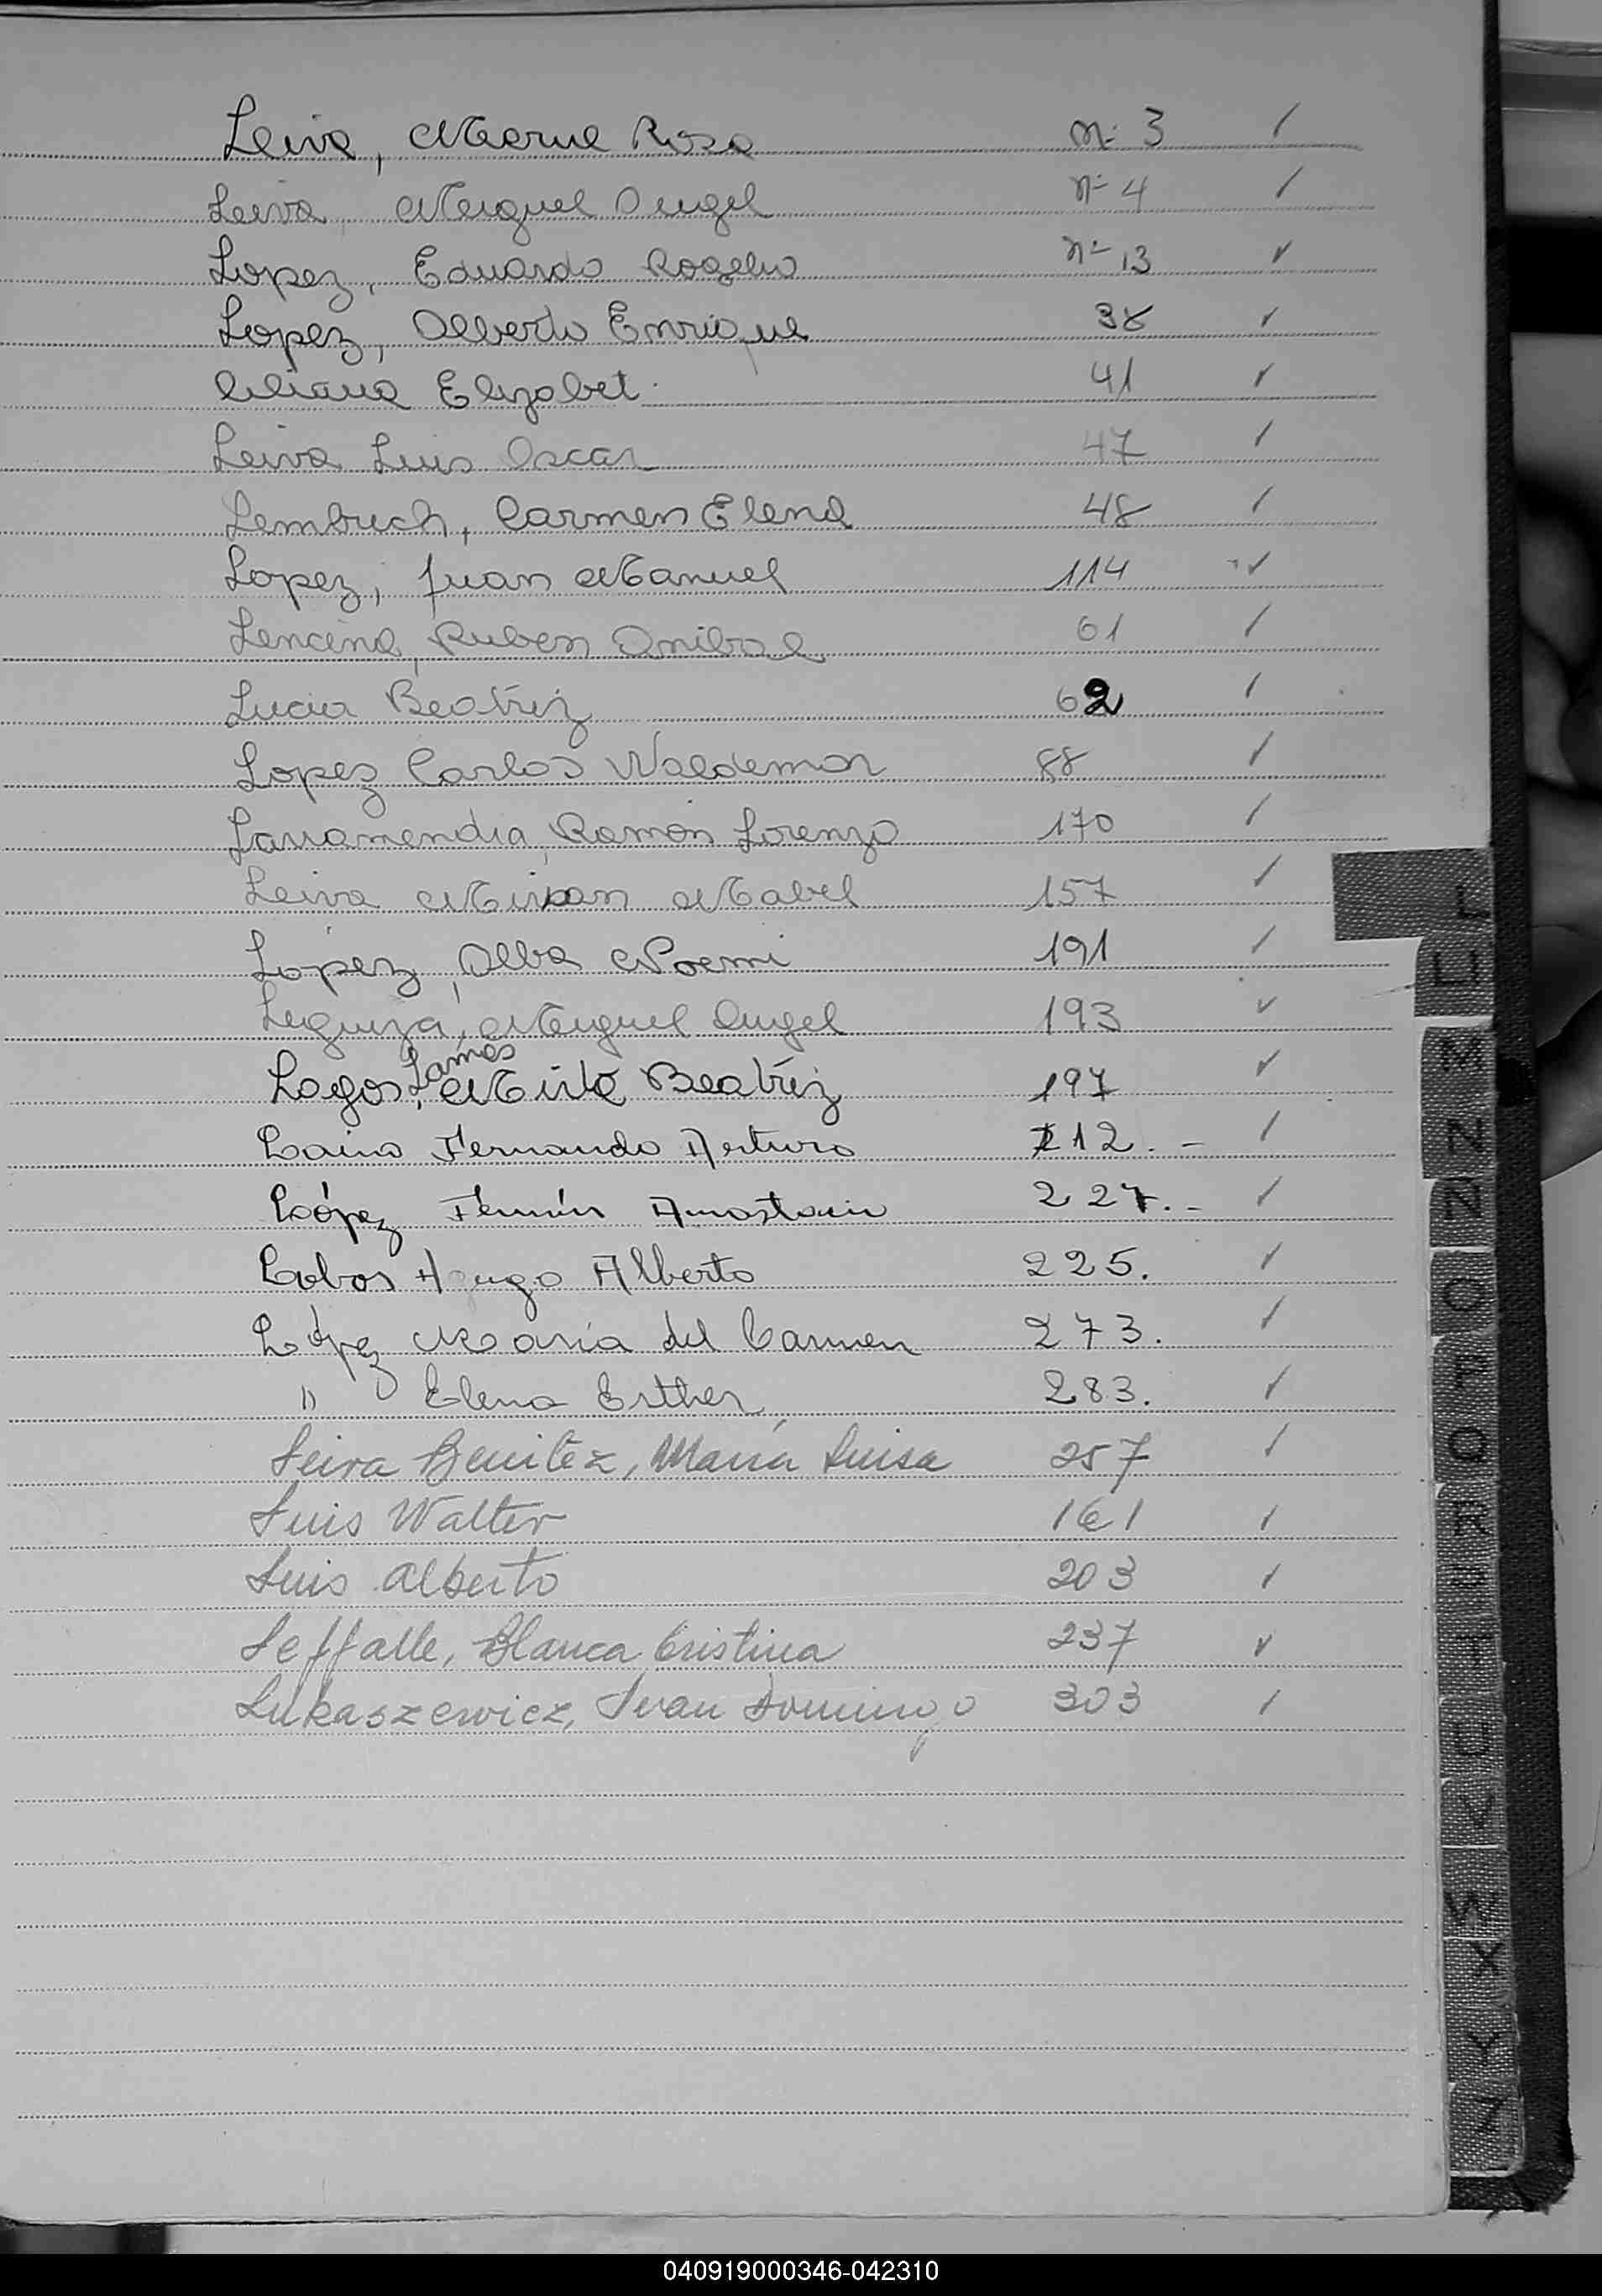 Leiva, Marue Rosa nº 3 /
Leiva, Miguel Angel nº 4 /
Lopez, Eduardo Rogelio nº 13 ✓
Lopez, Alberto Enrique 38 ✓
Liliana Elizabet. 41 ✓
Leiva Luis Oscar 47 /
Lembuch, Carmen Elena 48 /
Lopez, Juan Manuel 114 ✓
Lencina, Ruben Anibal 61 /
Lucia Beatriz 62 /
Lopez Carlos Waldemar 88 /
Larramendia, Ramón Lorenzo 170 /
Leiva Mirian Mabel 157 /
Lópèz, Alba Noemi 191 /
Leguiza, Miguel Angel 193 ✓
Lamas
Lagos, Mirta Beatriz 197 ✓
Fernando Arturo 212. - /
López Fermín Anastacio 227. - /
Lobos Hugo Alberto 225. /
López Maria del Carmen 273. /
" Elena Esther 283. /
Leiva Benitez, María Luisa 257 /
Luis Walter 161 /
Luis Alberto 203 /
Leffalle, Blanca Cristina 237 ✓
Lukaszewicz, Juan Domingo 303 /
L
LL
M
N
Ñ
O
P
Q
R
S
T
U
V
W
X
Y
Z
040919000346-042310